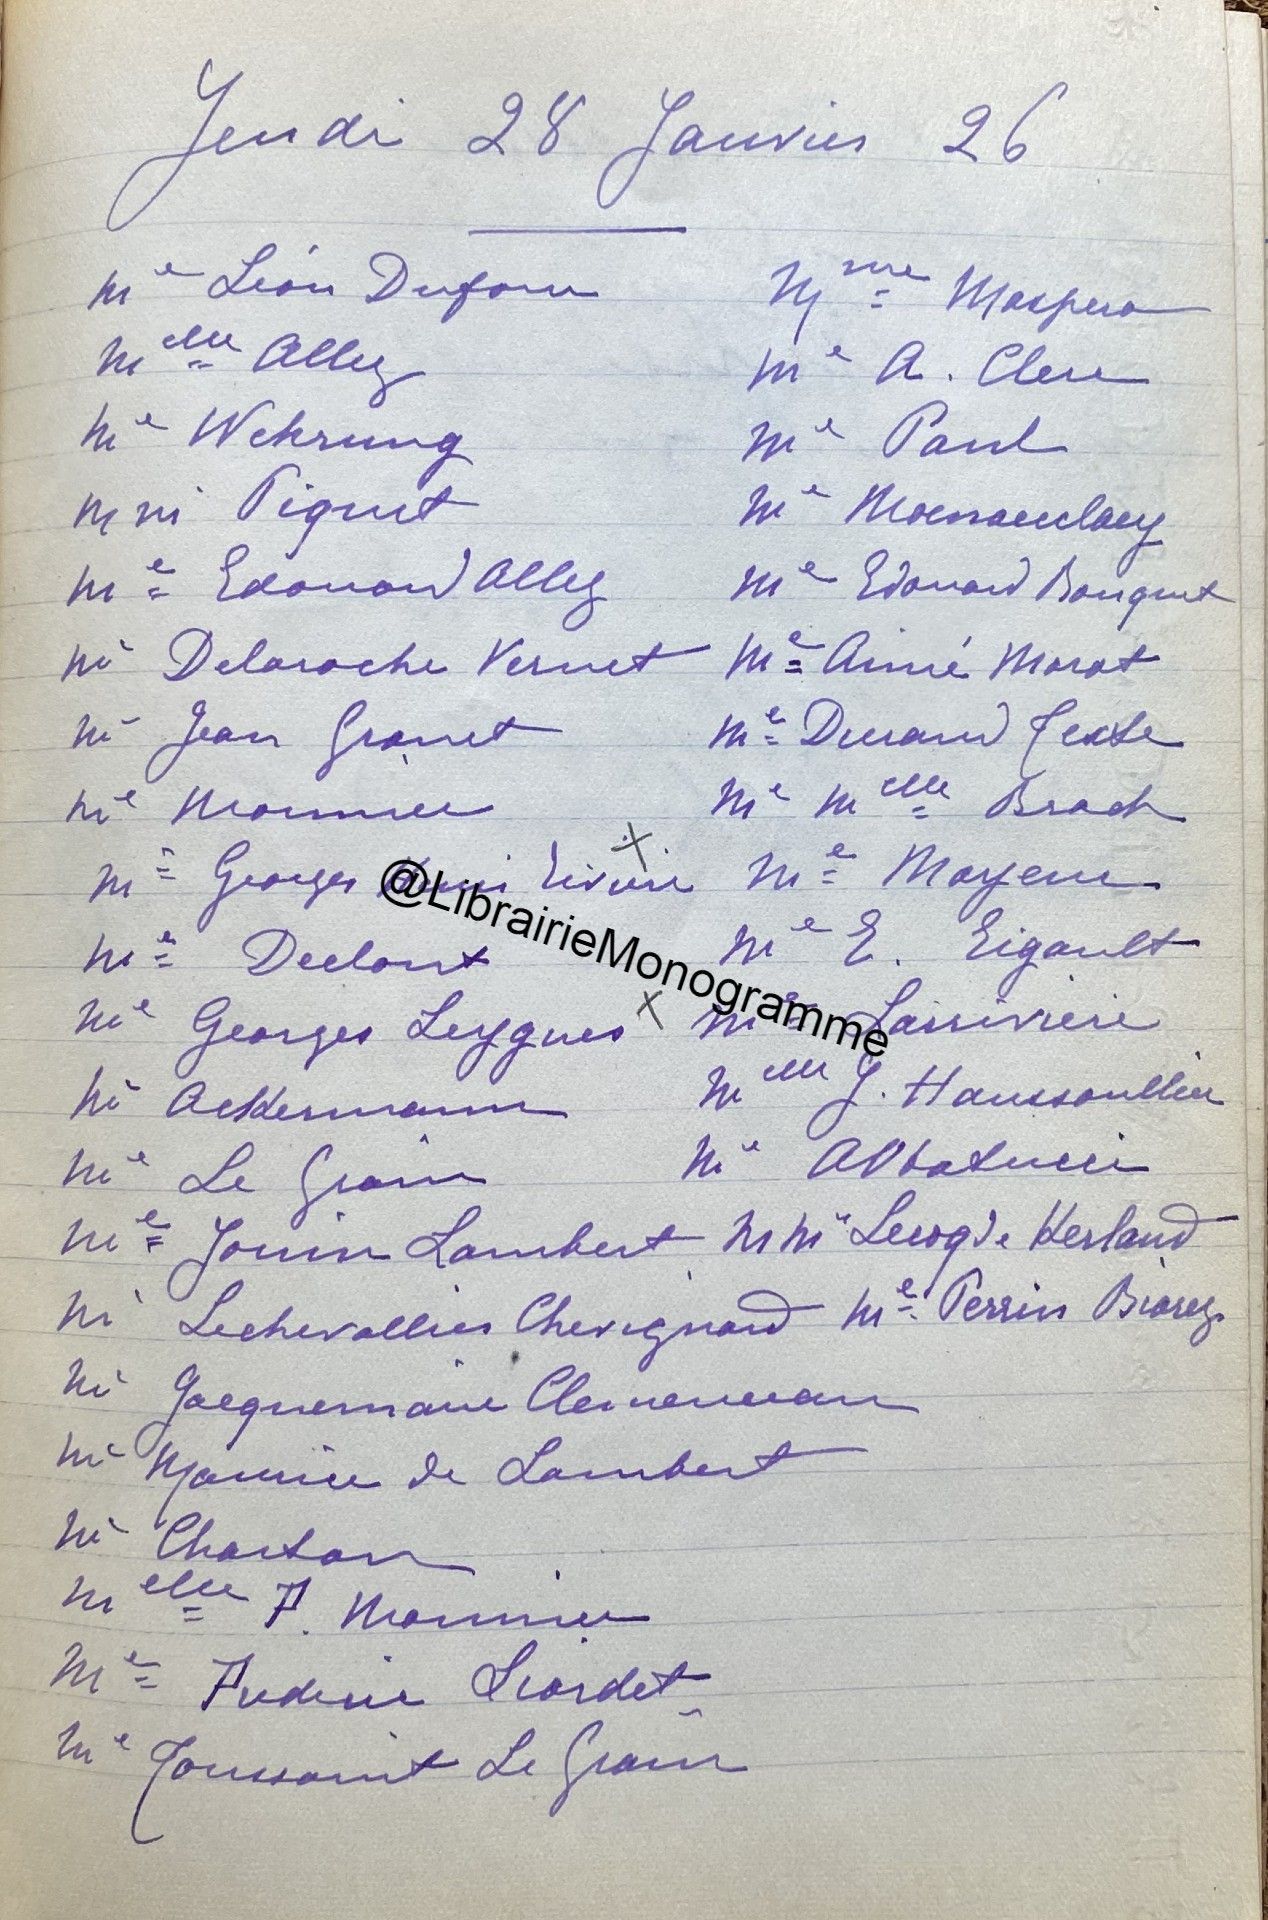 Jeudi 28 Janvier 26
Me Léon Dufour
Melle Allez
Me Wehrung
M Me Piquet
Me Edouard Allez
Me Delaroche Vernet
Me Jean Granet
Me Monnier
Me Georges Rivière
Me Declout
Me Georges Leygues
Me Ackermann
Me Le Grain
Me Jouin Lambert
Me Lechevallier Chevignard
Me Jacquemaire Clemenceau
Me Maurice de Lambert
Me Charton
Melle F. Monnier
Me Frederic Liordet
Me Toussaint Le Grain
Mme Maspero
Me A. Clerc
Me Paul
Me
Me Edouard Bouquet
Me Aimé Morot
Me Durand Texte
Me Melle Brach
Me Mayeur
Me E. Rigault
Me Larrivière
Melle J. Haussoullier
Me Abbatucci
M Me Lecoq de Kerland
Me Perrin Biarez
@LibrairieMonogramme